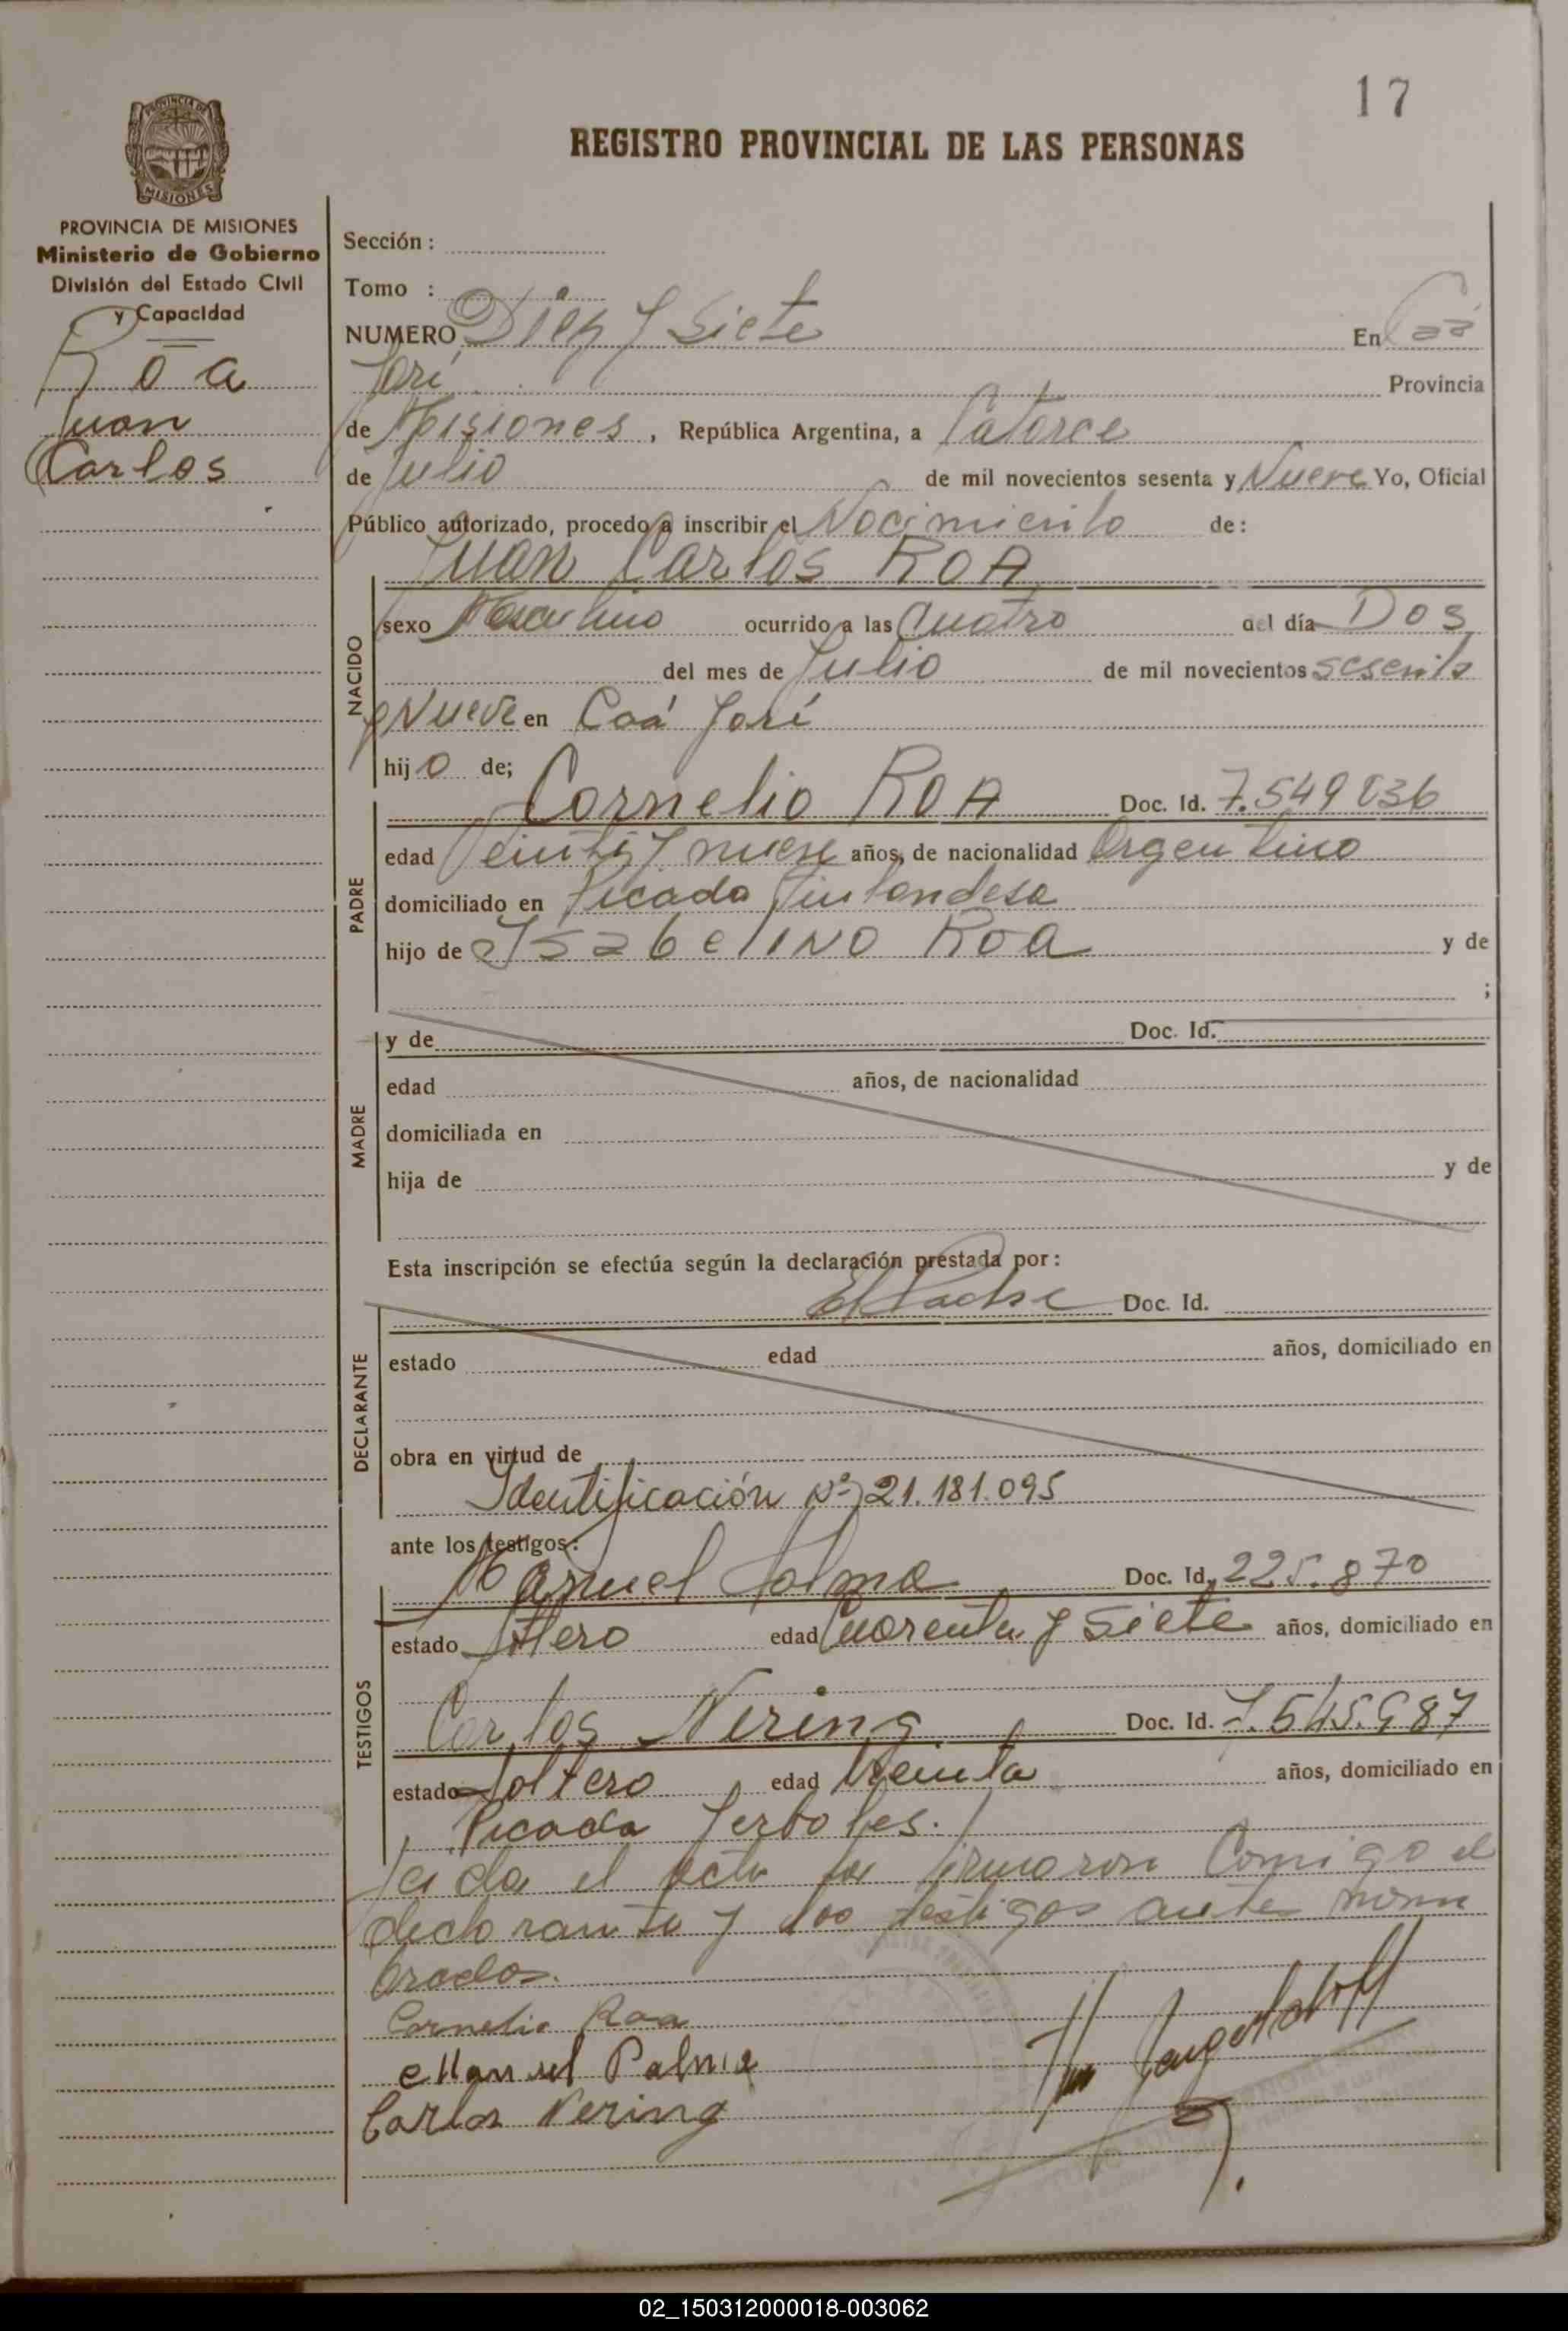 17
REGISTRO PROVINCIAL DE LAS PERSONAS
PROVINCIA DE
MISIONES
PROVINCIA DE MISIONES
Ministerio de Gobierno
División del Estado Civil
y Capacidad
Roa
Juan
Carlos
Sección :
Tomo :
NUMERO Diez y Siete En Caá
Yarí Provincia
de Misiones, República Argentina, a Catorce
de Julio de mil novecientos sesenta y Nueve Yo, Oficial
Público autorizado, procedo a inscribir el Nacimiento de:
Juan Carlos ROA
NACIDO
sexo Masculino ocurrido a las Cuatro del día Dos
del mes de Julio de mil novecientos sesenta
y Nueve en Caá Yarí
hijo de;
PADRE
Cornelio ROA Doc. Id. 7.549 836
edad Veinti y nueve años, de nacionalidad Argentino
domiciliado en Picada Finlandesa
hijo de Isabelino Roa y de
;
MADRE
y de Doc. Id.
edad años, de nacionalidad
domiciliada en
hija de y de
Esta inscripción se efectúa según la declaración prestada por:
El Padre Doc. Id.
DECLARANTE
estado edad años, domiciliado en
obra en virtud de
Identificación Nº 21.181.095
ante los testigos:
TESTIGOS
Manuel Palma Doc. Id. 225.870
estado edad Cuarenta y Siete años, domiciliado en
Carlos Nering Doc. Id. 7.545.987
estado Soltero edad treinta años, domiciliado en
Picada Yerbales.
Leida el acta la firmaron Comigo el
declarante y los testigos antes nom
brados.
Cornelio Roa
Manuel Palma
Carlos Nering
02_150312000018-003062